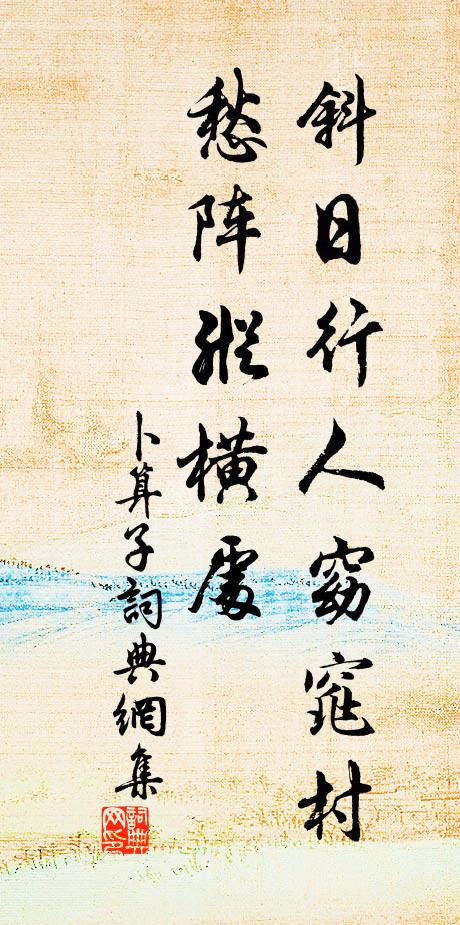 斜日行人窈窕村
愁阵縱橫處
卜算子詞典網集
詞典
网印